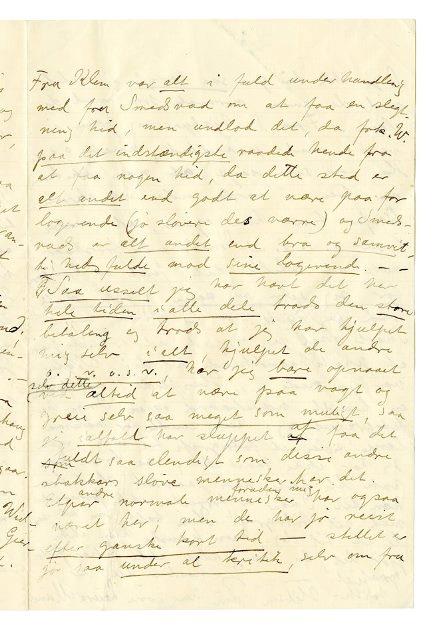 Fru Klem var alt i fuld underhandling
med fru Smedsvad om at faa en slegt-
ning hid, men undlod det, da frk. W.
paa det indstændigste raaded hende fra
at faa nogen hid, da dette sted er
alt andet end godt at være paa for
logerende (jo sløvere des værre) og Smeds-
vads er alt andet end bra og samvit-
tighetsfulde mod sine logerende. –
Saa usselt jeg har havt det her
hele tiden i alle dele trods den store
betaling og trods at jeg har hjulpet
mig selv i alt, hjulpet de andre
o. s. v. o. s. v., har jeg bare opnaaet
selv dette
ved altid at være paa vagt og
greie selv saa meget som muligt, saa
jeg ialfald har sluppet at faa det
fuldt saa elendigt som disse andre
stakkars sløve mennesker har det.
andre foruden mig
Etpar normale mennesker har ogsaa
været her; men de har jo reist
efter ganske kort tid — stellet er
jo saa under al kritik, selv om fru